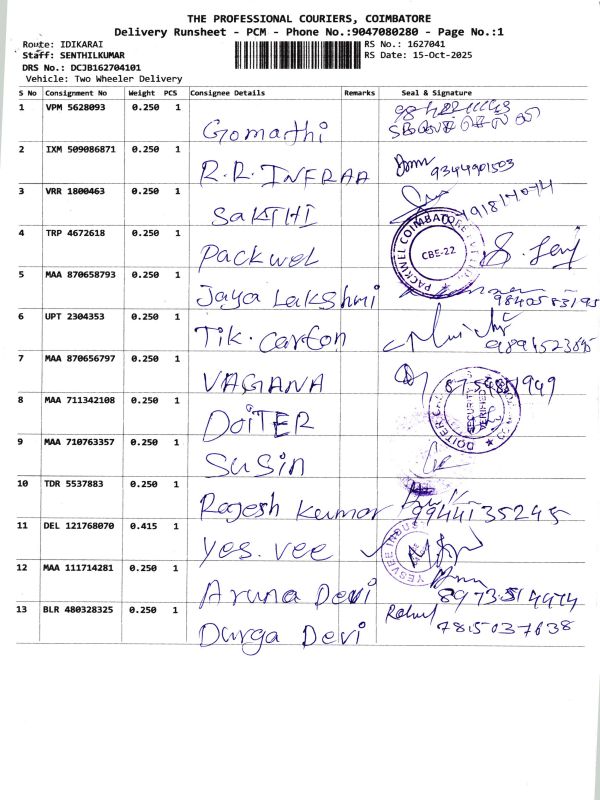 THE PROFESSIONAL COURIERS, COIMBATORE
Delivery Runsheet - PCM - Phone No.:9047080280 - Page No.:1
Route: IDIKARAI
RS No.: 1627041
Staff: SENTHILKUMAR
RS Date: 15-Oct-2025
DRS No.: DCJB162704101
Vehicle: Two Wheeler Delivery
S No Consignment No Weight PCS Consignee Details Remarks Seal & Signature
1 VPM 5628093 0.250 1 Gomathi
2 IXM 509086871 0.250 1 R.R. INFRAA 9344901503
3 VRR 1800463 0.250 1 SAKTHI
4 TRP 4672618 0.250 1 Packwel PACKWEL COIMBATORE CBE-22
5 MAA 870658793 0.250 1 Jaya Lakshmi 9840583195
6 UPT 2304353 0.250 1 Tik. Carton
7 MAA 870656797 0.250 1 VAGANA
8 MAA 711342108 0.250 1 DOITER DOITER SECURITY VERIFIED
9 MAA 710763357 0.250 1 Susin
10 TDR 5537883 0.250 1 Rajesh Kumar 9944135245
11 DEL 121768070 0.415 1 Yes. Vee YESVEE INDUS
12 MAA 111714281 0.250 1 Aruna Devi 8973514974
13 BLR 480328325 0.250 1 Durga Devi Rahul 7815037638